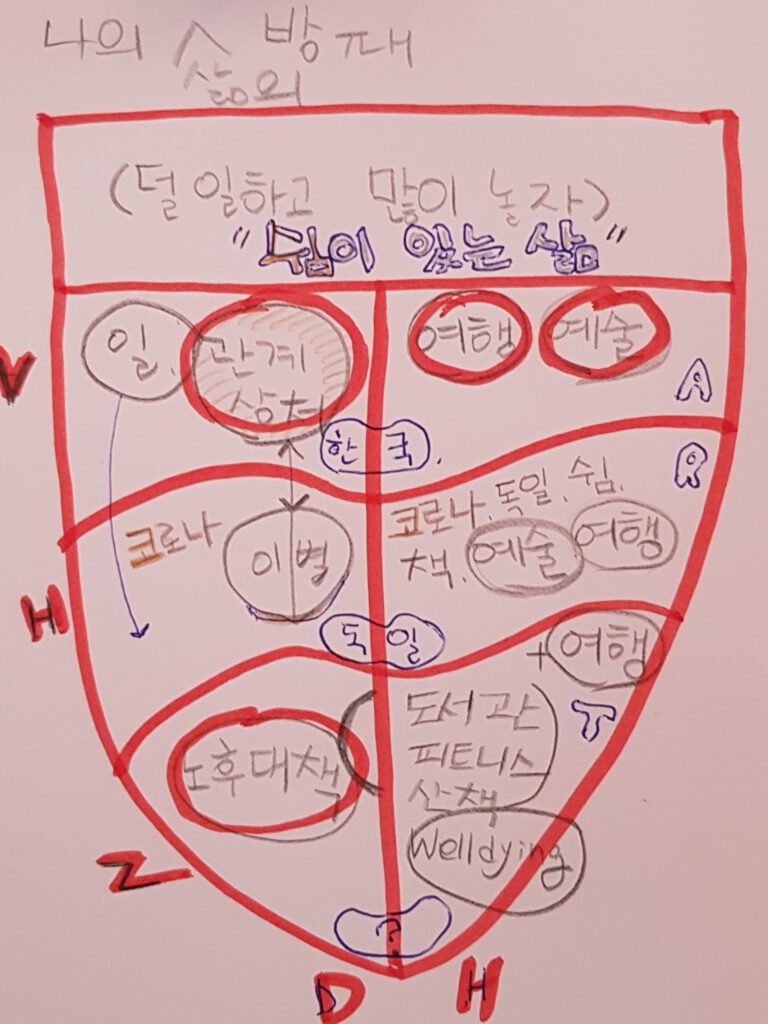 나의 삶 방패
삶의
(덜 일하고 많이 놀자)
"쉼이 있는 삶"
V
일.
관계
상처
여행
예술
A
한국.
R
코로나
이별
코로나. 독일. 쉼.
책. 예술 여행
H
독일
+여행
노후대책
도서관
피트니스
산책
T
Welldying
Z
?
D
H